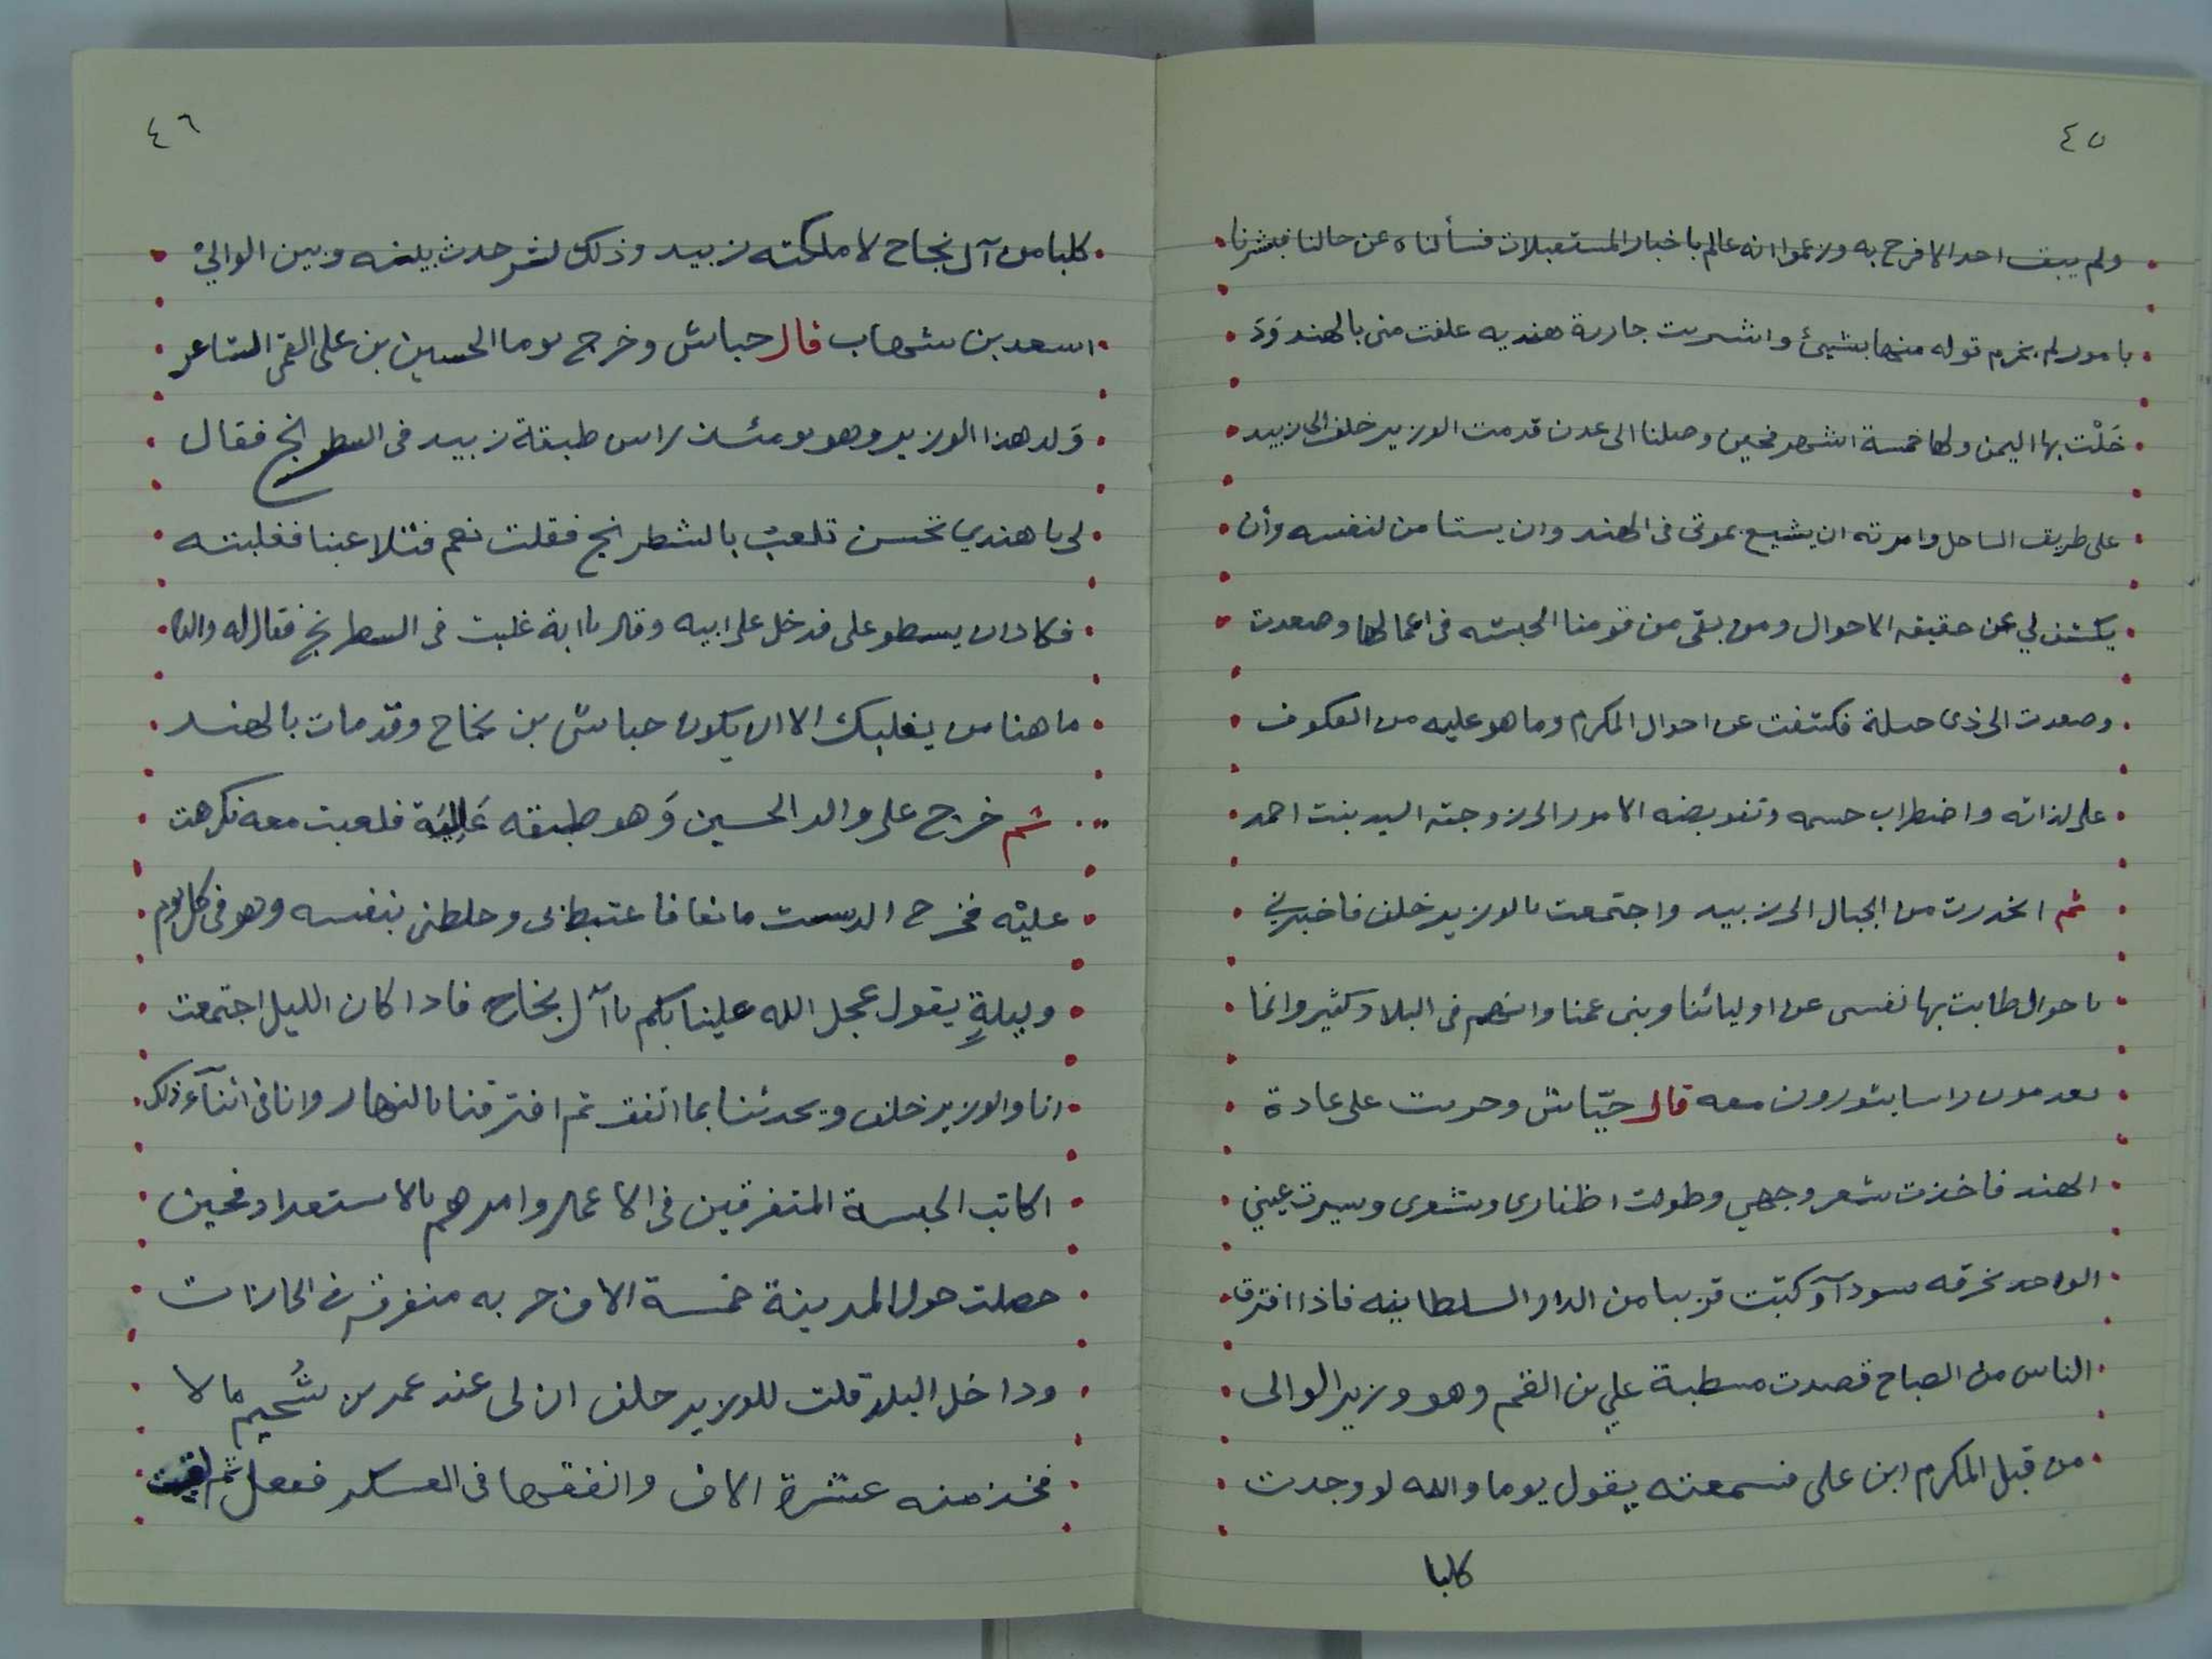 ٤٥
ولم يبق احد الا فرح به وزعموا انه عالم باخبار المستقبلات فسألناه عن حالنا فبشرنا
بامور لم يخرم قوله منها بشيئ واشتريت جارية هنديه علقت منى بالهند وَدَ
خَلْت بها اليمن ولها خمسة اشهر فحين وصلنا الى عدن قدمت الوزير خلف الى زبيد
على طريق الساحل وامرته ان يشيع بموتى فى الهند وان يستامن لنفسه وأن
يكشف لي عن حقيقه الاحوال ومن بقى من قومنا الحبشه فى اعمالها وصعدت
وصعدت الى ذى جبلة فكشفت عن احوال المكرم وما هو عليه من العكوف
على لذاته واضطراب جسمه وتفويضه الامور الى زوجته السيد بنت احمد
ثم انحدرت من الجبال الى زبيد واجتمعت بالوزير خلف فاخبرني
باحوال طابت بها نفسى عن اوليائنا وبنى عمنا وانهم فى البلاد كثير وانما
يعدمون راسا يثورون معه قال جيّاش وجريت على عادة
الهند فاخذت شعر وجهي وطولت اظفارى وشعرى وسيرت عيني
الواحد بخرقه سودآء وكبتت قريبا من الدار السلطانيه فاذا افترق
الناس من الصباح قصدت مسطبة علي بن القم وهو وزير الوالى
من قبل المكرم ابن على فسمعته يقول يوما والله لو وجدت
كلبا
٤٦
كلبا من آل نجاح لا ملكته زبيد وذلك لشر حدث بينه وبين الواليْ
اسعد بن شهاب قال جياش وخرج يوما الحسين بن على القمى الشاعر
وَلد هذا الوزير وهو يومئذ راس طبقة زبيد فى الشطرنج فقال
لى يا هندي تحسن تلعب بالشطرنج فقلت نعم فتلاعبنا فغلبته
فكاد ان يسطو على فدخل على ابيه وقال يا ابة غلبت فى الشطرنج فقال له والده
ما هنا من يغلبك الا ان يكون جياش بن نجاح وقد مات بالهند
ثم خرج على والد الحسين وَهو طبقه عَاليَة فلعبت معه فكرهت
عليْه فخرج الدست مانعا فاغتبط بى وخلطنى بنفسه وهو فى كل يوم
وليلةٍ يقول عجل الله علينا بكم يا آل نجاح فاذا كان الليل اجتمعت
انا والوزير خلف ويحدثنا بما اتفق ثم افترقنا بالنهار وانا فى اثنآء ذلك
اكاتب الحبشة المتفرقين فى الاعمال وامرهم بالاستعداد فحين
حصلت حول المدينة خمسة الاف حربه متفرقه فى الحارات
وداخل البلد قلت للوزير خلف ان لى عند عمر بن سُحيم مالا
فخذ منه عشرة الاف وانفقها فى العسكر ففعل ثم لقيت